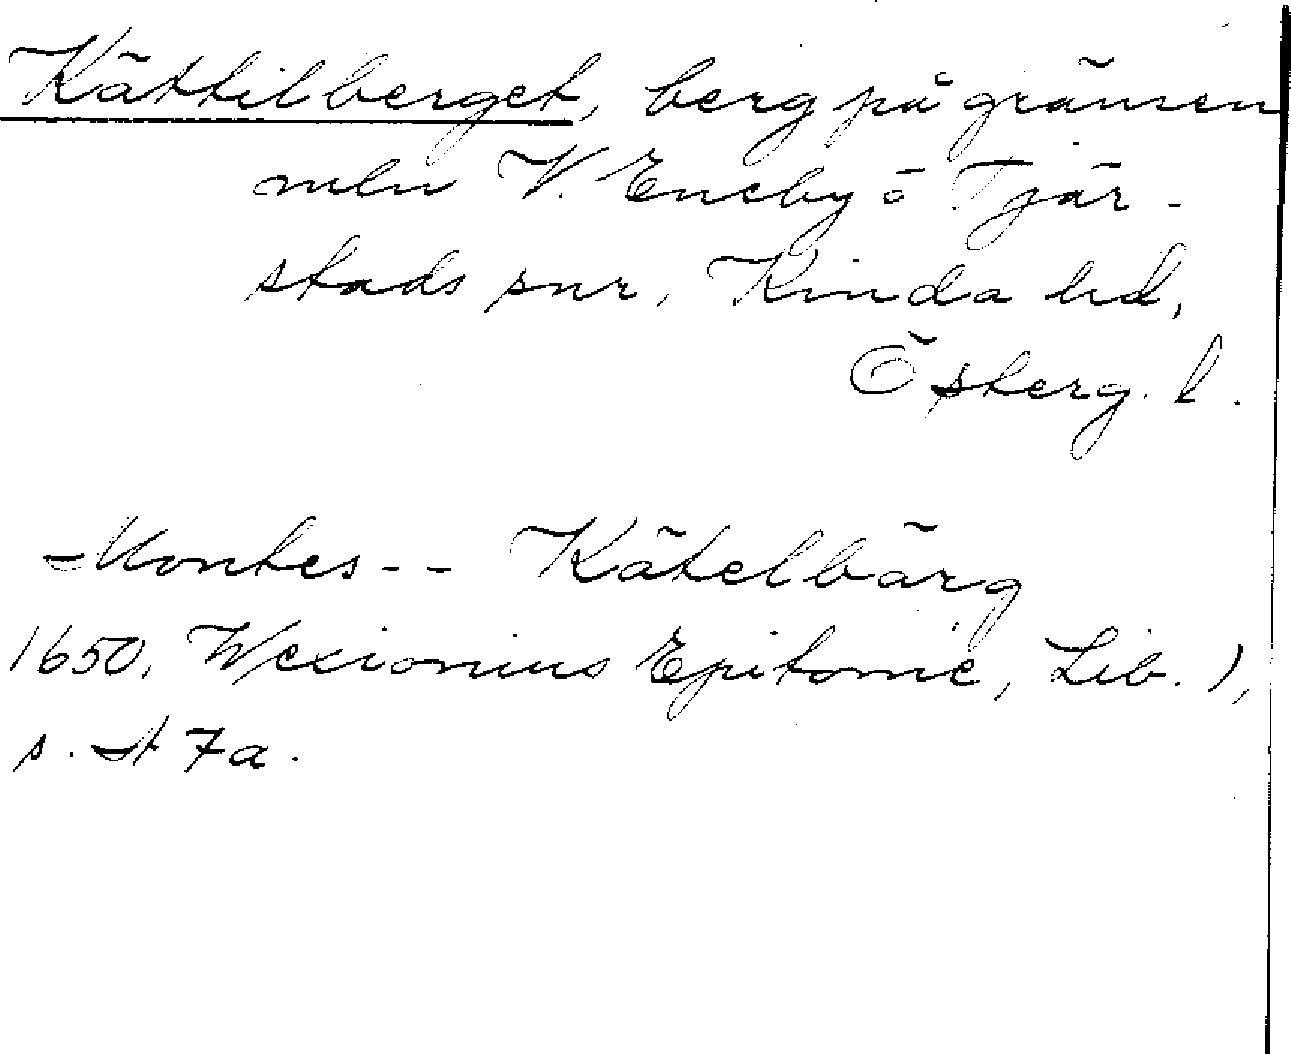 Kättilberget, berg på gränsen
mln V. Eneby o Tjär-
stads snr, Kinda hd,
Österg. l.
Montes -- Kätelbärg
1650, Wexionius Epitome, Lib. I,
s. A 7a.